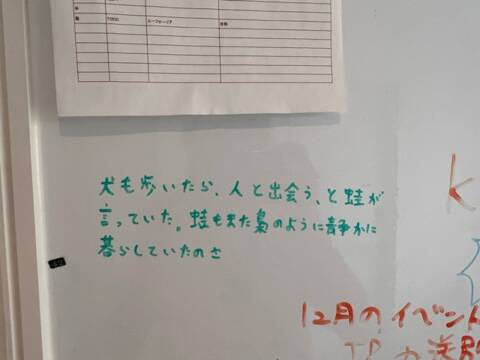 犬も歩いたら、人と出会う、と蛙が
言っていた。蛙もまた梟のように静かに
暮らしていたのさ
k
12月のイベン